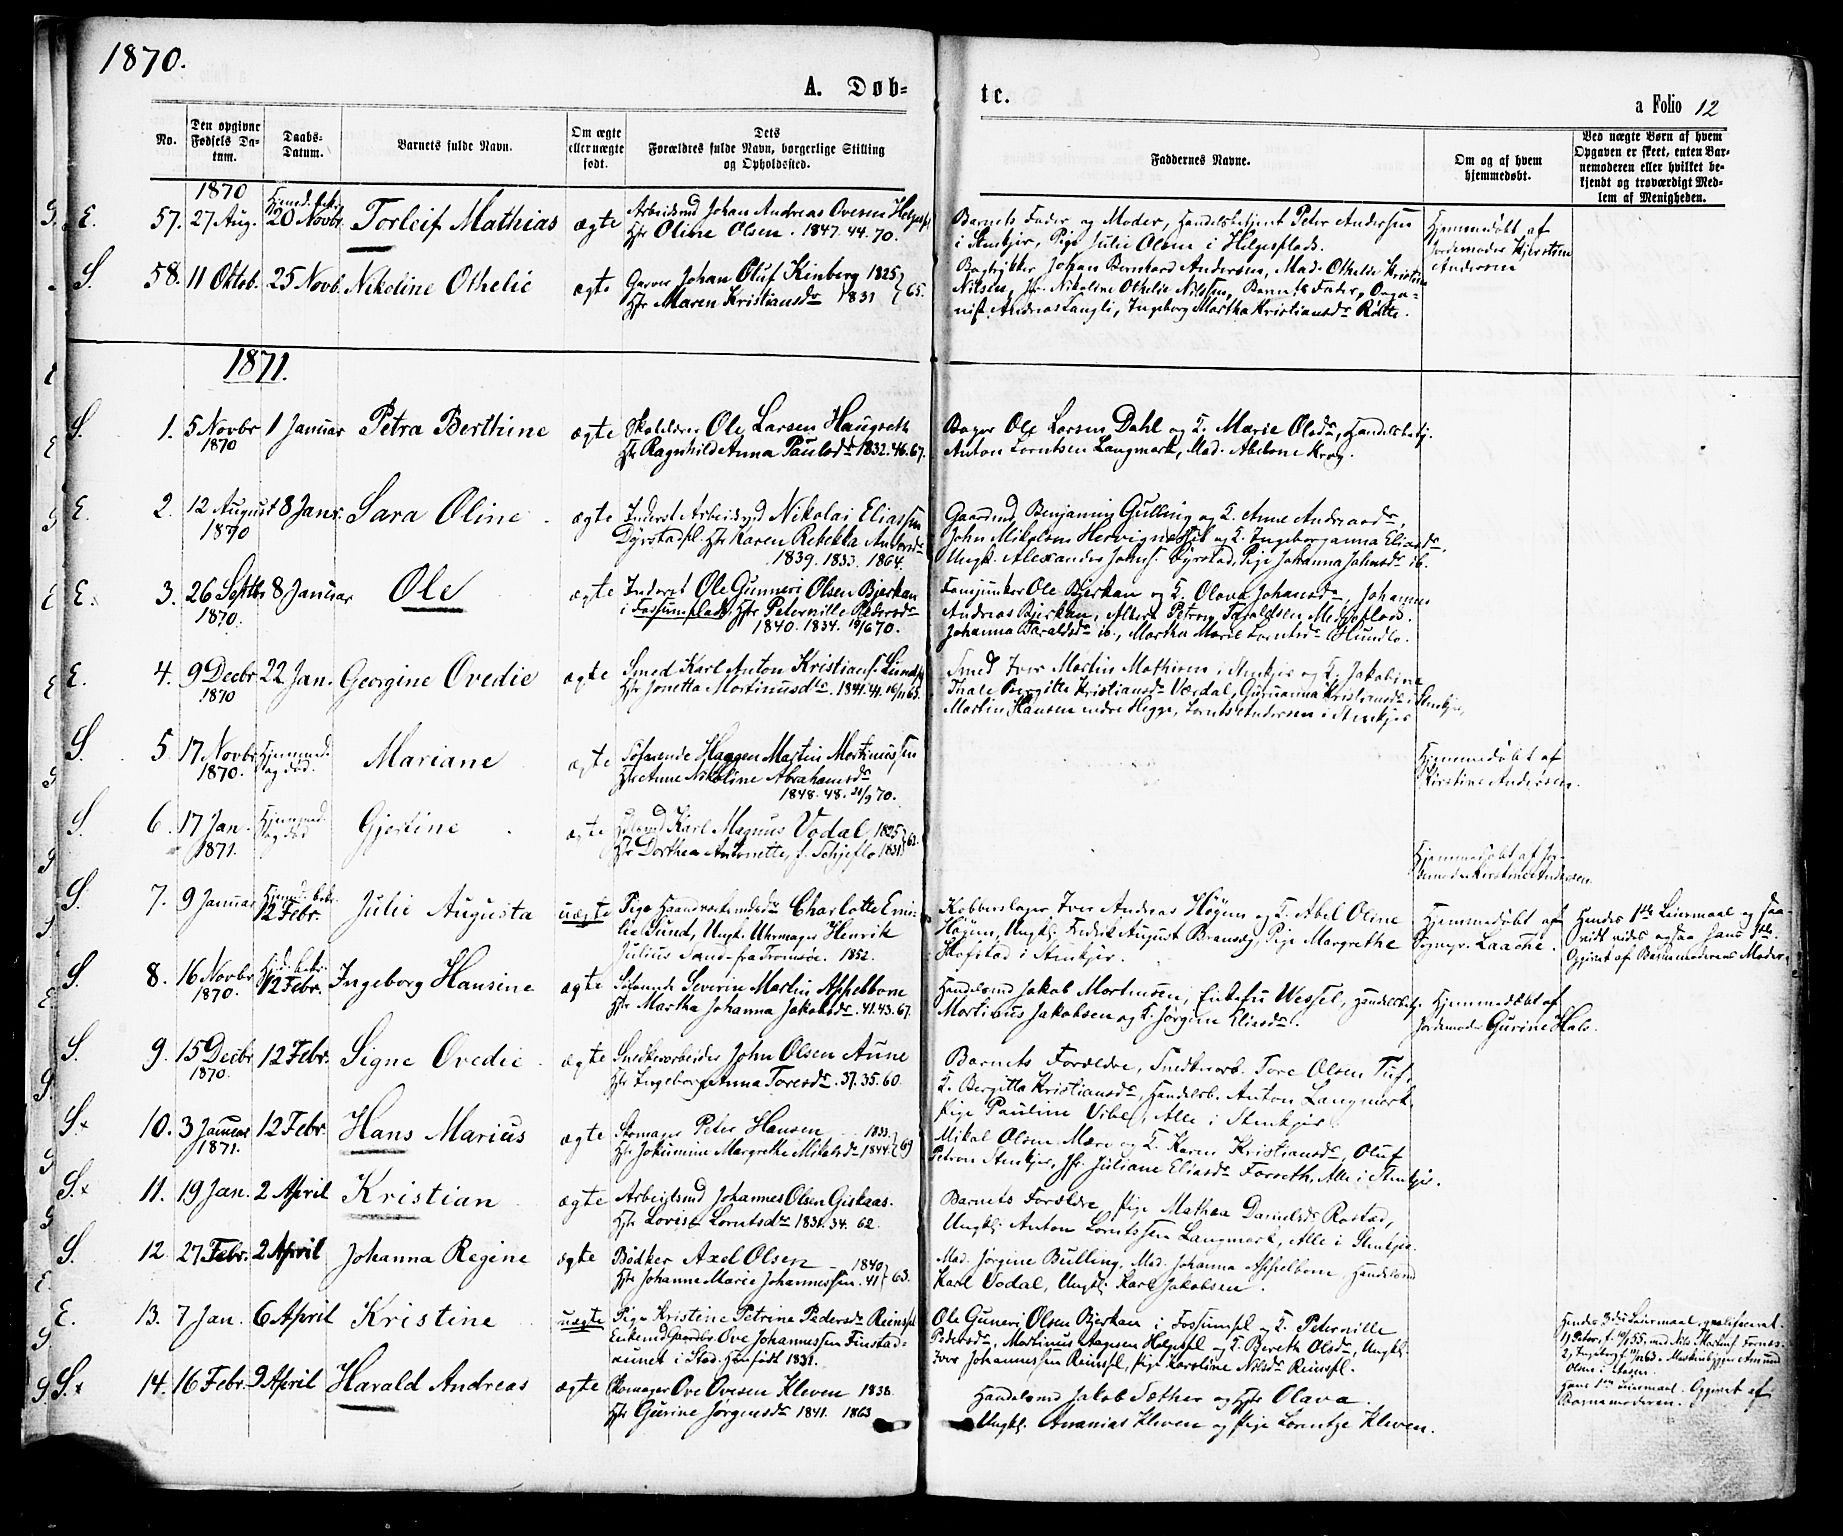 1870.
A. Døb-
te.
a Folio 12
No.
Den opgivne
Fødsels Da-
tum.
Daabs-
Datum.
Barnets fulde Navn.
Om ægte
eller uægte
født.
Dets
Forældres fulde Navn, borgerlige Stilling
og Opholdssted.
Faddernes Navne.
Om og af hvem
hjemmedøbt.
Ved uægte Børn af hvem
Opgaven er skeet, enten Bar-
nemoderen eller hvilket be-
kjendt og troværdigt Med-
lem af Menigheden.
1870
E. 57. 27 Aug. Hjemd. bekr. 20 Novbr Torleif Mathias ægte
Arbeidsmd Johan Andreas Ovesen Helgespl
Hst Oline Olsen. 1847. 44. 70.
Barnets Fader og Moder, Handelsbetjent Peter Andersen
i Stenkjær, Pige Julie Olsen i Helgesplads.
Hjemmedøbt af
Jordemoder Kjerstine
Andersen
S. 58. 11 Oktob. 25 Novb. Nikoline Othelie ægte
Garver Johan Oluf Kinberg 1825
Hst Maren Kristiansdr 1831 65.
Bogtrykker Johan Bernhard Andersen, Mad. Othelde Kristine
Nilsen, Jfr. Nikoline Othelie Nilssen, Barnets Fader, Orga-
nist Andreas Langli, Ingeborg Martha Kristiansdr Røltte.
1871.
S. 1. 5 Novbr 1 Januar Petra Berthine ægte
1870
Skolelærer Ole Larsen Haugreth
Hst Ragnhild Anna Paulsdr 1832. 46. 67.
Bager Ole Larsen Dahl og K. Marie Olsdr, Handelsbetj.
Anton Lorntsen Langmark, Mad. Abelone Krog.
E. 2. 12 August 8 Janr. Sara Oline ægte
1870
Inderst Arbeidsmd Nikolai Eliassen
Dyrstadpl. Hst Karen Rebekka Andersdr
1839. 1833. 1864.
Gaardmd Benjamin Gulling og K. Anne Andreasdr,
John Mikalsen Hervignesset og K. Ingeborganna Eliasdr,
Ungk. Alexander Johnss. Dyrstad, Pige Johanna Johnsdr ib.
E. 3. 26 Septbr 8 Januar Ole ægte
1870.
Inderst Ole Guneri Olsen Bjerkan
i Fossumplads, Hst Peternille Pedersdr
1840. 1834. 70.
Fanjunker Ole Bjerkan og K. Olava Johansdr, Johannes
Andreas Bjerkan, Albert Petrus Taraldsen
Johanna Taraldsdr ib., Martha Marie Lorntsdr
E. 4. 9 Decbr 22 Jan. Georgine Ovedie ægte
1870
Smed Karl Anton Kristians. Lundspl
Hst Jonetta Mortinusdr. 1841. 41. 16/11 63.
Smed Iver Martin Mathisen i Stenkjer og K. Jakobine
Thale Bergitte Kristiansdr Værdal, Gurianna Kristiansdr i Stenkjer,
Martin Hansen nedre Hegge, Lornts Andersen i Stenkjer
S. 5. 17 Novbr Hjemmed. Mariane ægte
1870. og død.
Søfarende Haagen Martin Mortinussen
Hst Anne Nikoline Abrahamsdr
1848. 48. 21/9 70.
Hjemmedøbt af
Kirstine Andersen.
S. 6. 17 Jan. Hjemmed. Gjertine ægte
1871. og død
Karl Magnus Vodal 1825
Hst Dorthea Antonette, f. Schjeflo 1831 62.
Hjemmedøbt af Jor-
demoder Kirstine Andersen.
S. 7. 9 Januar Hjemd. bekr. 12 Febr. Julie Augusta uægte
Pige Haandværkersdtr Charlotte Emi-
lie Sund, Ungk. Uhrmager Henrik
Julius Sand fra Tromsøe. 1852.
Kobberslager Iver Andreas Høyem og K. Abel Oline
Høyem, Ungk. Fredrik August Brandseg, Pige Margrethe
Hofstad i Stenkjer.
Hjemmedøbt af
Sognpr. Laache.
Hendes 1ste Leiermaal og saa-
vidt vides ogsaa hans 1ste.
Opgivet af Barnemoderens Moder.
S. 8. 16 Novbr Hjd. bekr. 12 Febr. Ingeborg Hansine ægte
1870.
Søfarende Severin Martin Appelbom
Hst Martha Johanna Jakobsdr. 41. 43. 67.
Handelsmd Jakob Mortensen, Enkefru Wessel, Handelsbetj.
Mortinus Jakobsen og K. Jørgine Eliasdr.
Hjemmedøbt af
Jordemoder Gurine Hals.
S. 9. 15 Decbr 12 Febr. Signe Ovedie ægte
1870.
Snedkerarbeider John Olsen Aune
Hst Ingeborg Anna Toresdr. 37. 35. 60.
Barnets Forældre, Snedkerarb. Tore Olsen Tuf,
K. Bergitta Kristiansdr, Handelsb. Anton Langmark,
Pige Pauline Vibe, Alle i Stenkjer.
S. 10. 3 Januar 12 Febr. Hans Marius ægte
1871.
Skomager Peter Hansen 1833
Hst Jokumine Margrethe Mikalsdr 1844 69
Mikal Olsen Mære og K. Karen Kristiansdr, Oluf
Petersen Stenkjer, Jfr. Juliane Eliasdr Forseth, Alle i Stenkjer.
S. 11. 19 Jan. 2 April Kristian ægte
Arbeidsmd Johannes Olsen Giskaas.
Hst Lovise Lorntsdr 1831. 34. 62.
Barnets Forældre, Pige Mathea Danielsdr Rostad,
Ungk. Anton Lorntssen Langmark, Alle i Stenkjer.
S. 12 27 Febr. 2 April Johanna Regine ægte
Bødker Axel Olsen 1840
Hst Johanne Marie Johannessen. 41 63.
Mad. Jørgine Bulling, Mad. Johanna Appelbom, Handelsmd
Karl Vodal, Ungk. Karl Jakobsen.
E. 13. 7 Jan. 6 April Kristine uægte
Pige Kristine Petrine Pedersdr Reinspl
Enkemd Ove Johannessen Finstad-
aunet i Stod. Hun født 1831.
Ole Guneri Olsen Bjerkan i Fossumpl og K. Peternille
Pedersdr, Mortinus Aagesen Helgespl og K. Bereth Olsdr, Ungk.
Iver Johannessen Reinspl, Pige Karoline Nilsdr Reinspl.
Hendes 3die Leiermaal, qvalificeret.
1) Peter, f. 55. med Nils Martinss. Fornes.
2) Ingeborg 63. Maskinbygger Amund
Olsen i Statten.
Hans 1ste Leiermaal. Opgivet af
Barnemoderen.
S. 14. 16 Febr. 9 April Harald Andreas ægte
Skomager Ove Ovesen Kleven 1838.
Hst Gurine Jørgensdr 1841. 1863
Handelsmd Jakob Sæther og Hst Olava.
Ungk. Ananias Kleven og Pige Lorntze Kleven.